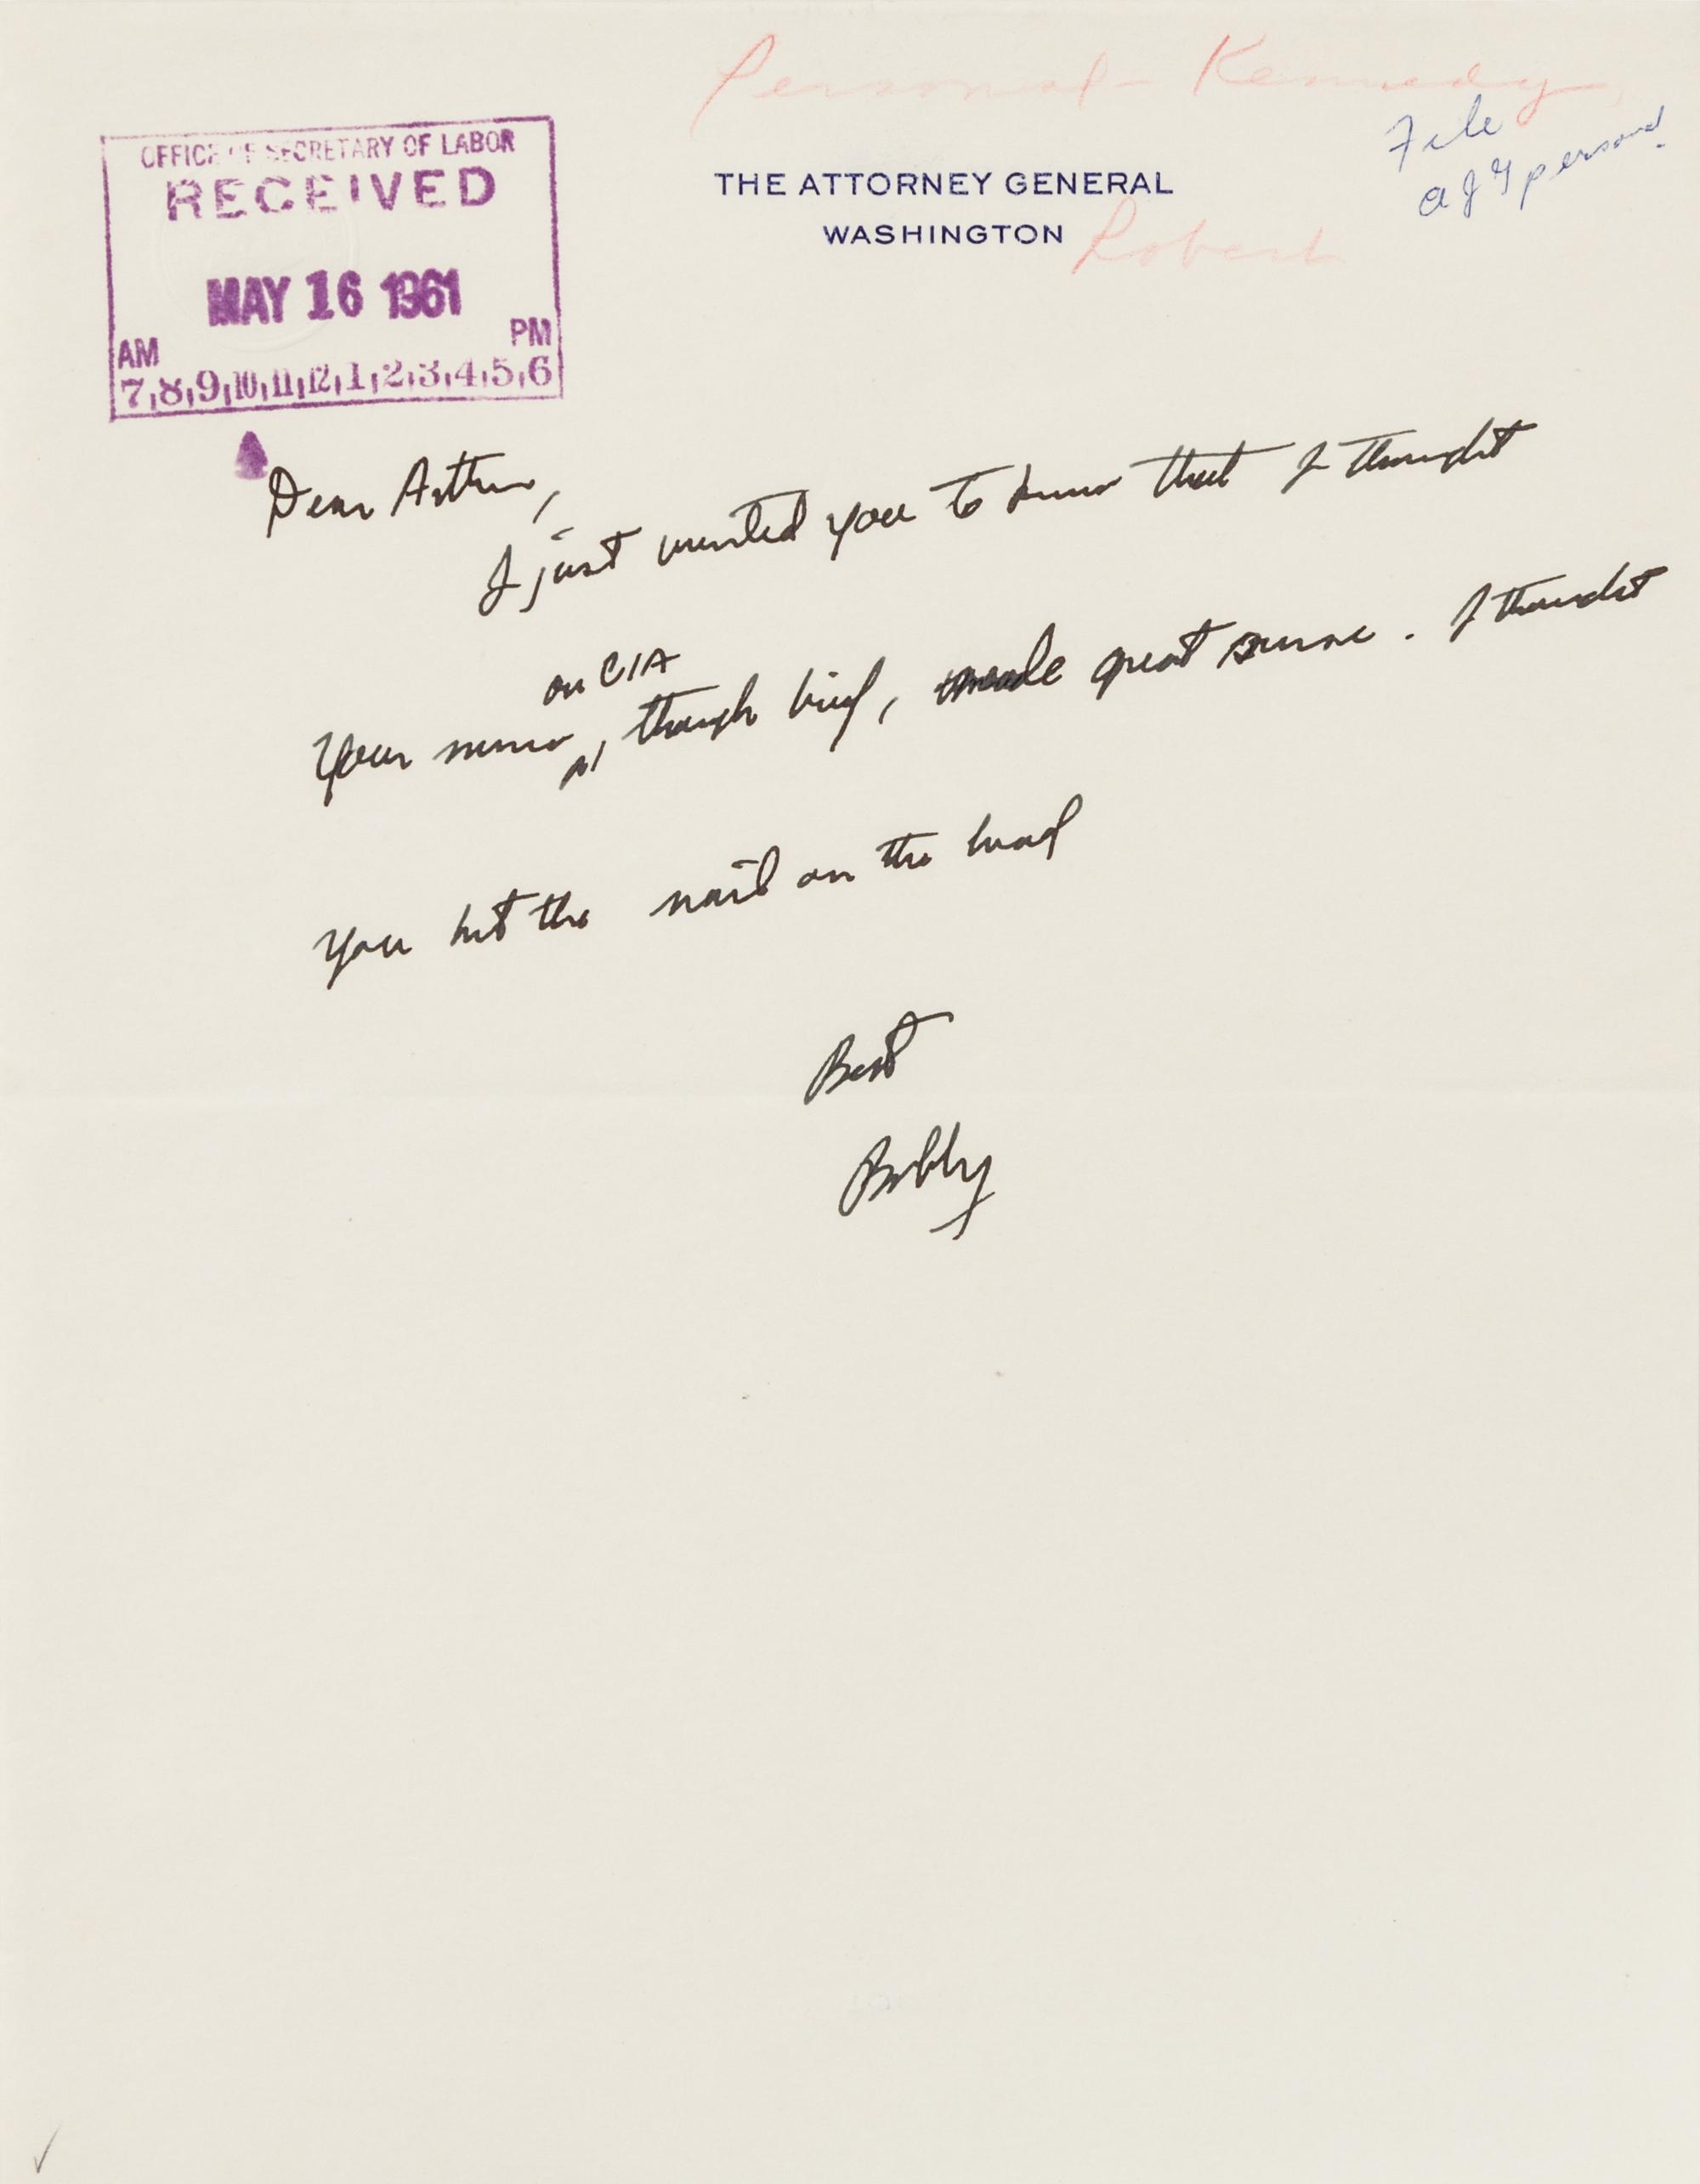 Personal - Kennedy,
File
AJG personal
OFFICE OF SECRETARY OF LABOR
RECEIVED
MAY 16 1961
AM PM
7,8,9,10,11,12,1,2,3,4,5,6
THE ATTORNEY GENERAL
WASHINGTON
Robert
Dear Arthur,
I just wanted you to know that I thought
on CIA
your memo, though brief, made great sense. I thought
you hit the nail on the head
Best
Bobby